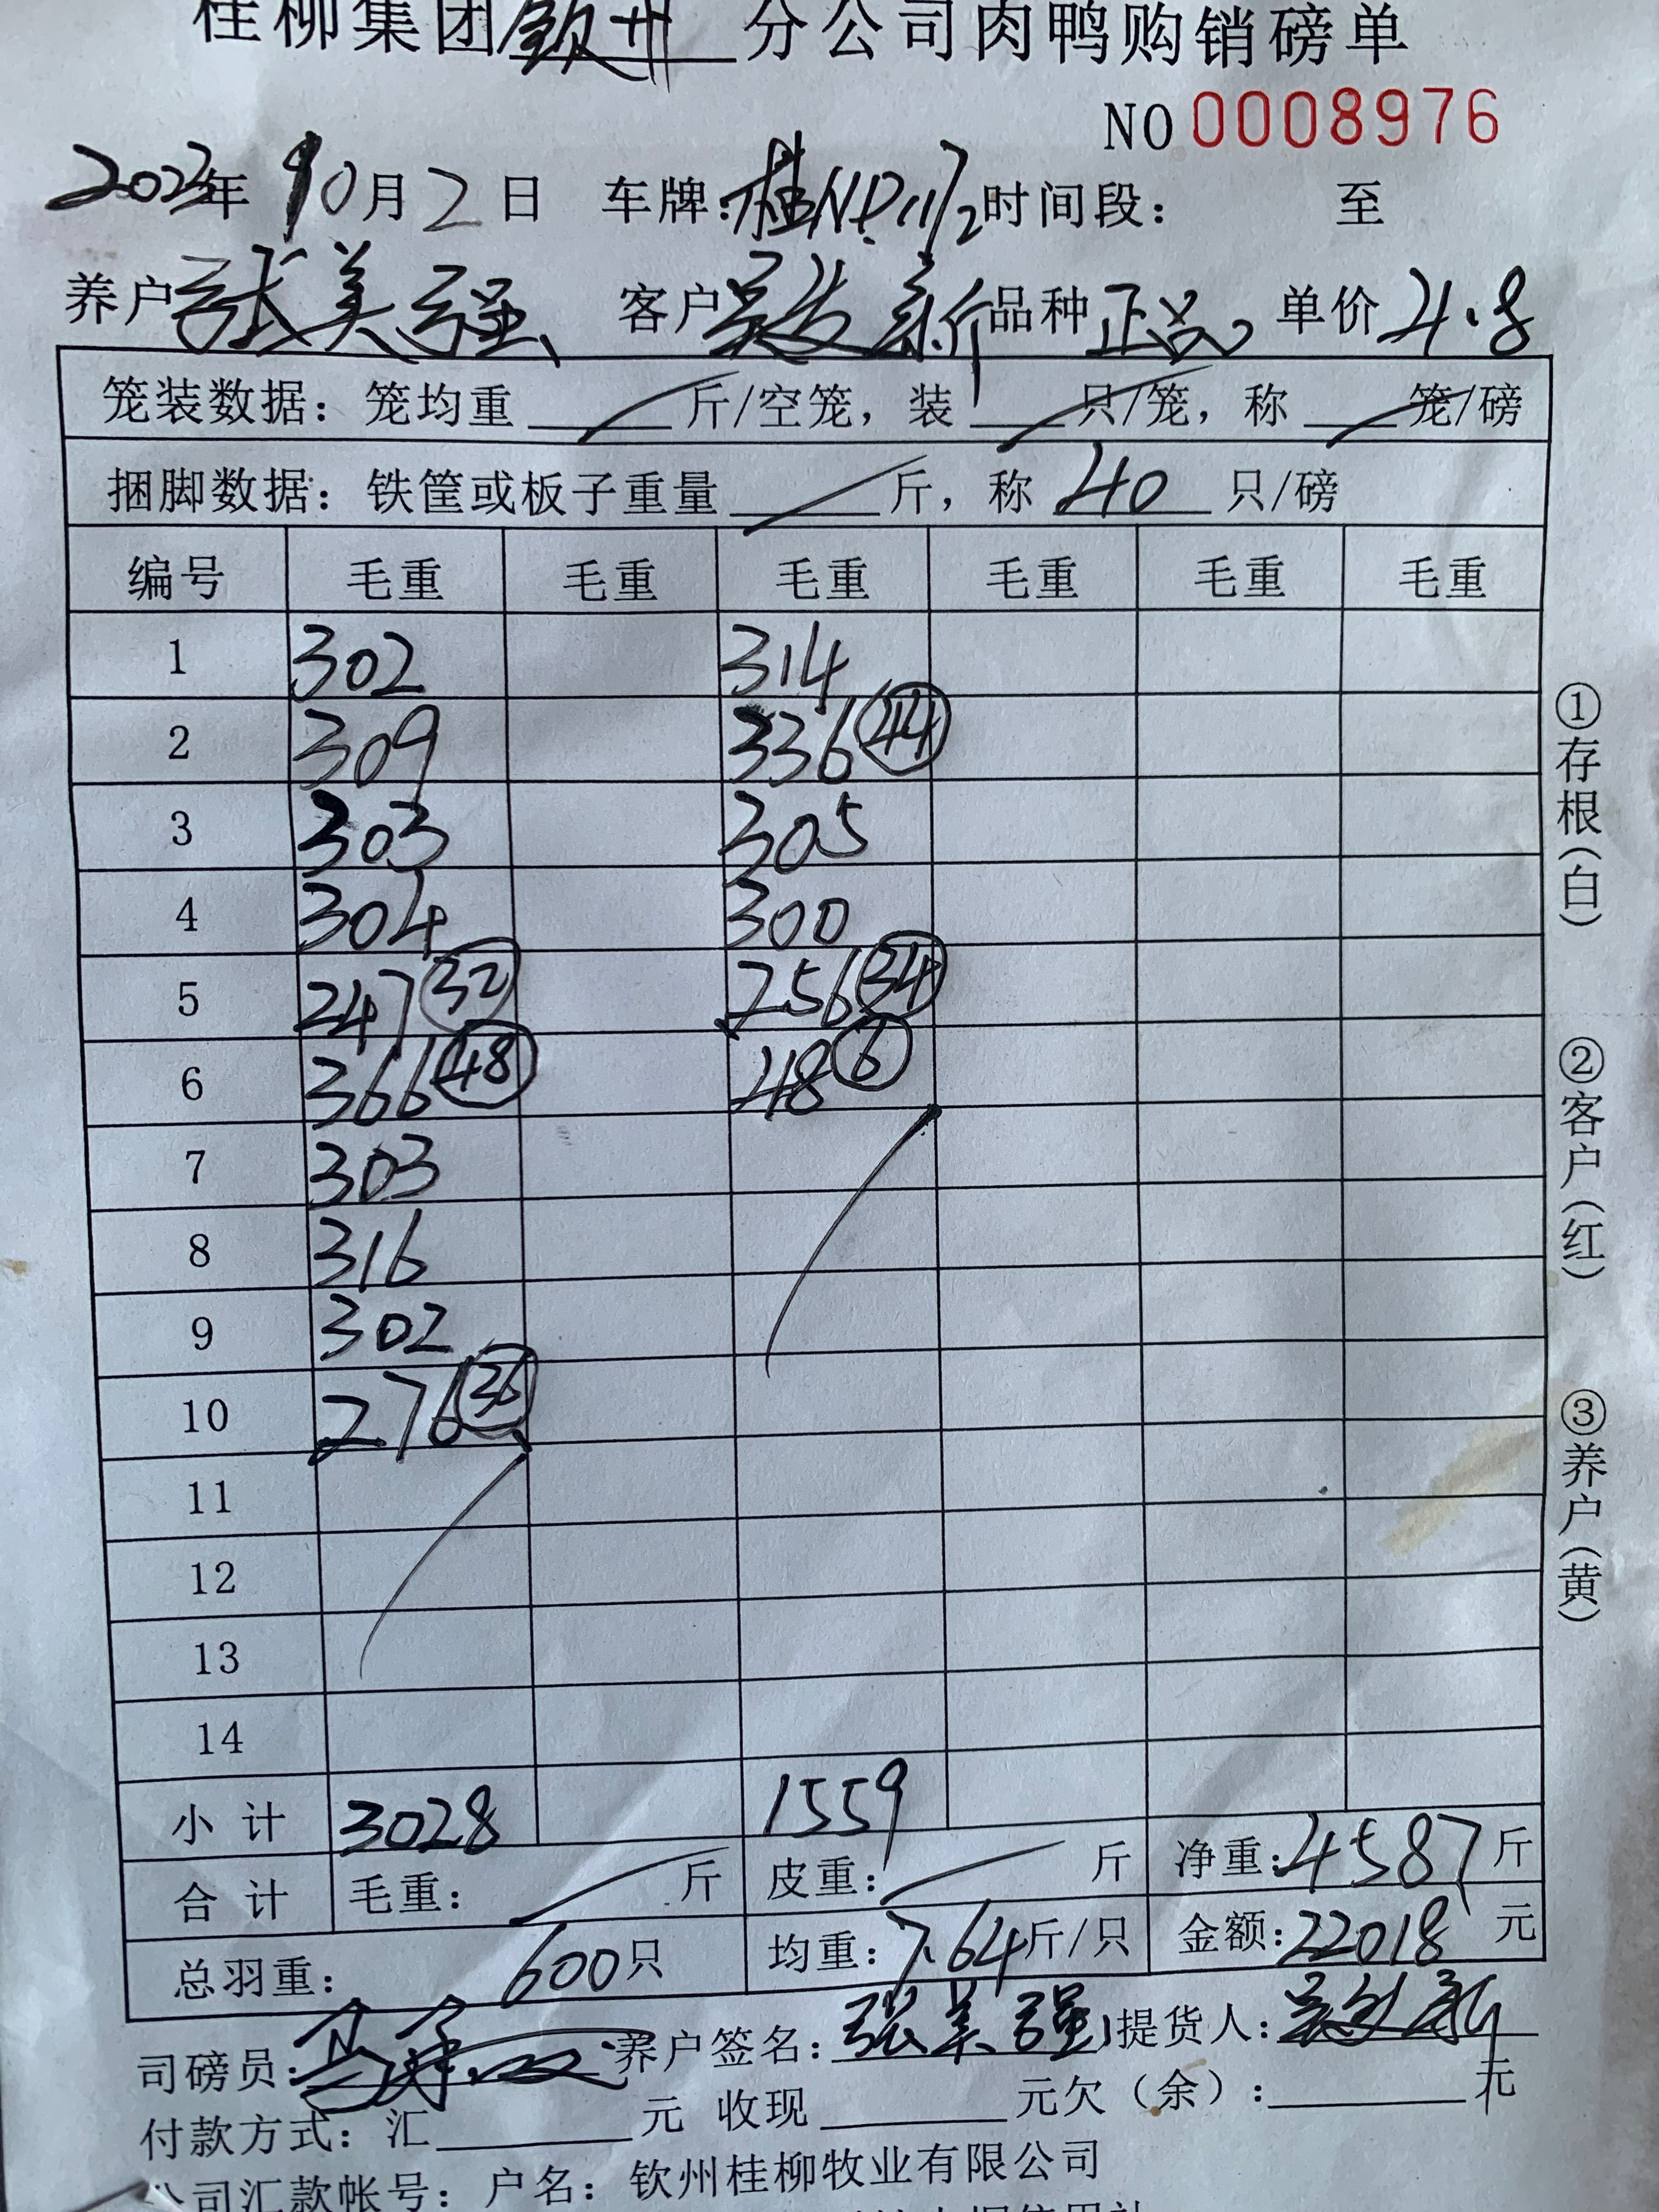 桂柳集团钦州分公司肉鸭购销磅单
NO 0008976
2023年10月2日 车牌: 时间段: 至
养户张美强 客户吴发新 品种正品 单价4.8
笼装数据: 笼均重 斤/空笼, 装 只/笼, 称 笼/磅
捆脚数据: 铁筐或板子重量 斤, 称 40 只/磅
编号 毛重 毛重 毛重 毛重 毛重 毛重
1 302 314
2 309 336 44
3 303 305
4 304 300
5 247 32 256 34
6 366 48 48 6
7 303
8 316
9 302
10 276 36
11
12
13
14
小计 3028 1559
合计 毛重: 斤 皮重: 斤 净重: 4587斤
总羽重: 600只 均重: 7.64斤/只 金额: 22018元
司磅员: 养户签名: 张美强 提货人: 吴发新
付款方式: 汇 元 收现 元欠(余): 元
公司汇款帐号: 户名: 钦州桂柳牧业有限公司
①存根(白)
②客户(红)
③养户(黄)